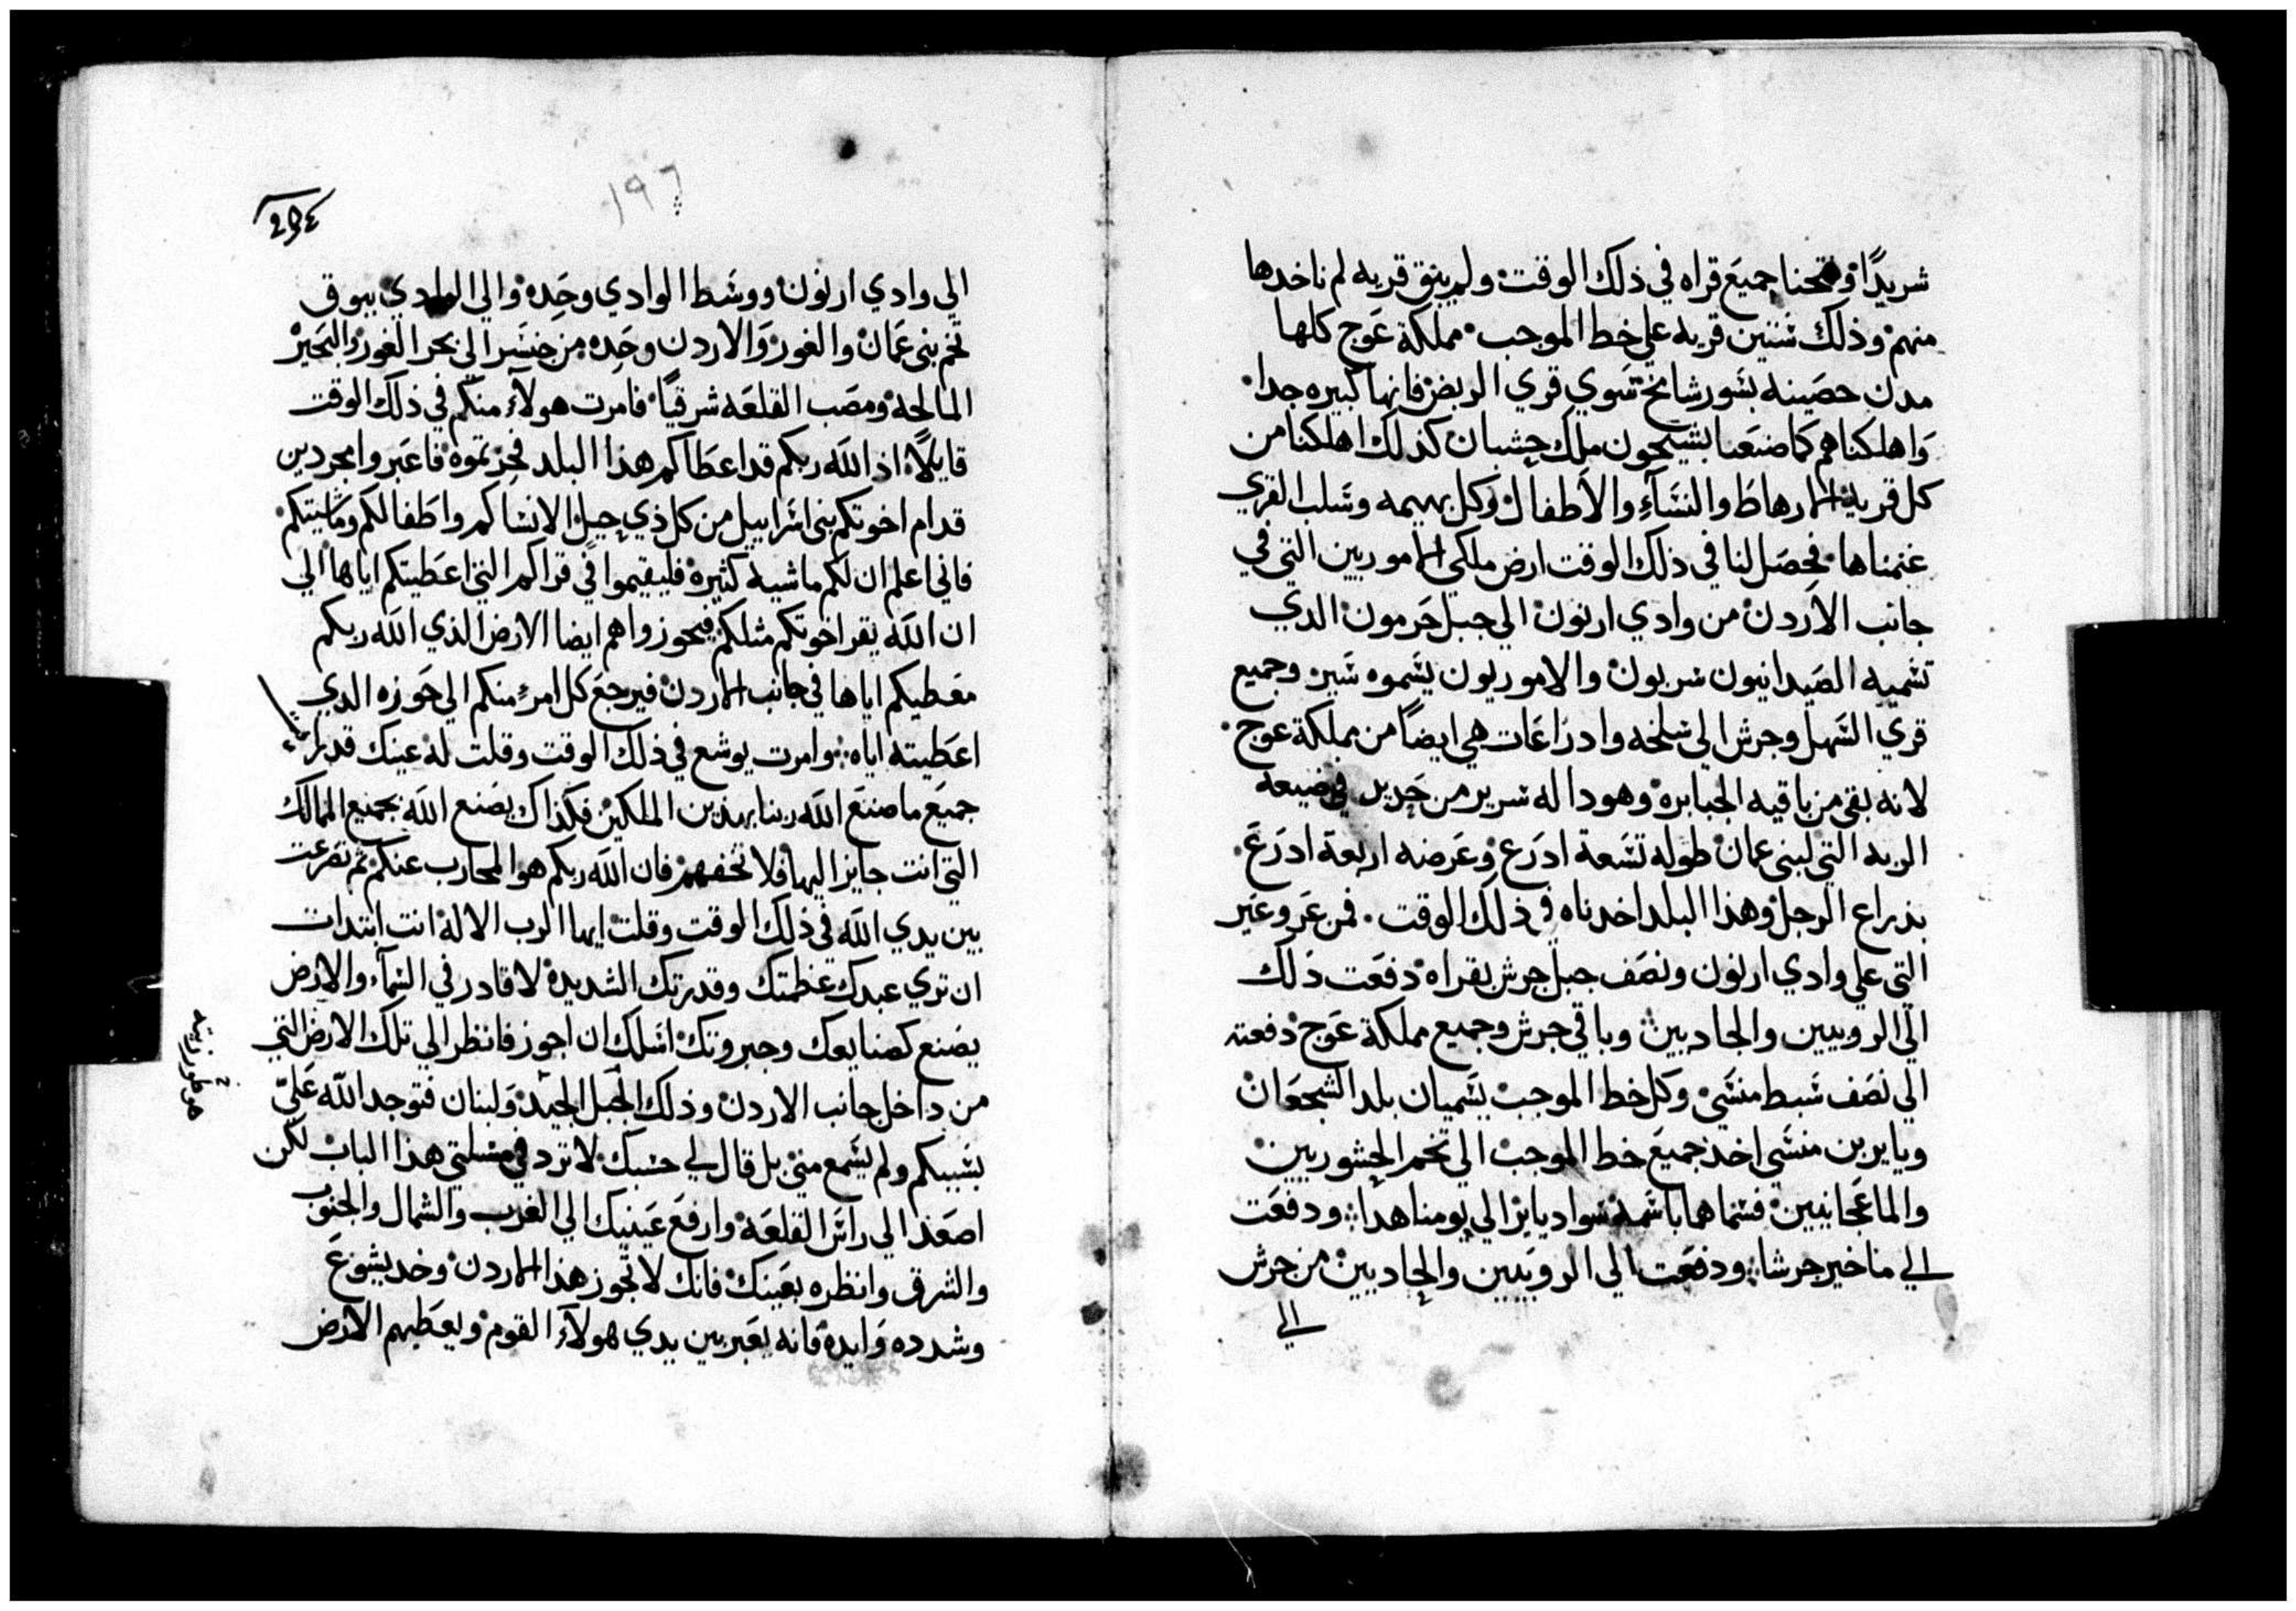 شريدًا وفتحنا جميع قراه في ذلك الوقت ولم يبق قريه لم ناخدها
منهم وذلك ستين قريه علي خط الموجب مملكة عوج كلها
مدن حصينه بسور شامخ سوي قري الربض فانها كبيره جدا
واهلكناهم كما صنعنا بسيحون ملك حشبان كذلك اهلكنا من
كل قرية الارهاط والنسآءِ والاطفال وكل بهيمه وسلب القري
غنمناها فحصل لنا في ذلك الوقت ارض ملكي الاموريين التي في
جانب الاردن من وادي ارنون الي جبل حرمون الدي
تسميه الصيدانيون سريون والاموريون يسموه سنير وجميع
قري السهل وجرش الي سلخه وادراعات هي ايضاً من مملكة عوج
لانه بقي من باقيه الجبابره وهودا له سرير من حديد في ضيعه
الربه التي لبني عمان طوله تسعة ادرع وعرضه اربعة ادرع
بذراع الرجل وهذا البلد اخدناه في ذلك الوقت فمن عروعير
التي علي وادي ارنون ونصف جبل جرش بقراه دفعت ذلك
الي الروبيين والجاديين وباقي جرش وجميع مملكة عوج دفعته
الي نصف سبط منسي وكل خط الموجب يسميان بلد الشجعان
ويايربن منسي اخذ جميع خط الموجب الي تخم الجشوريين
والماعخانيين فسماهما باسمه سواد يايرالي يومنا هدا ودفعت
الي ماخير جرشا ودفعت الي الروبيين والجاديين من جرش
الي
١٩٦
الي وادي ارنون ووسط الوادي وحده والي الوادي يبوق
تخم بني عمان والغور والاردن وحده من جنسر الي بحر الغور والبحير
المالحه ومصب القلعه شرقياً فامرت هولآءِ منكم في ذلك الوقت
قايلاً اذ الله ربكم قد اعطاكم هذا البلد فحزتموه فاعبروا مجردين
قدام اخوتكم بني اسراييل من كل ذي حيل الا نساكم واطفالكم وماشيتكم
فاني اعلم ان لكم ماشيه كثيره فليقيموا في قراكم التي اعطيتكم اياها الي
ان الله يقر اخوتكم مثلكم فيحوزوا هم ايضا الارض الذي الله ربكم
معطيكم اياها في جانب الاردن فيرجع كل امرءٍ منكم الي حوزه الدي
اعطيته اياه وامرت يوشع في ذلك الوقت وقلت له عينك قد رات
جميع ما صنع الله ربنا بهذين الملكين فكذاك يصنع الله بجميع الممالك
التي انت جايز اليها فلا تخفهم فان الله ربكم هو المحارب عنكم ثم تضرعت
بين يدي الله في ذلك الوقت وقلت ايها الرب الاله انت ابتدات
ان تري عبدك عظمتك وقدرتك الشديده لا قادر في السمآء والارض
يصنع كصنايعك وجبروتك اسلك ان اجوز فانظر الي تلك الارض التي
من داخل جانب الاردن وذلك الجبل الجيد ولبنان فتوجد الله عليّ
بسببكم ولم يسمع مني بل قال لي حسبك لا ترد في مسلتي هذا الباب لكن
اصعد الي راس القلعه وارفع عينيك الي الغرب والشمال والجنوب
والشرق وانظره بعينك فانك لا تجوز هذا الاردن وخد يشوع
وشدده وايده فانه يعبر بين يدي هولآءِ القوم ويعطيهم الارض